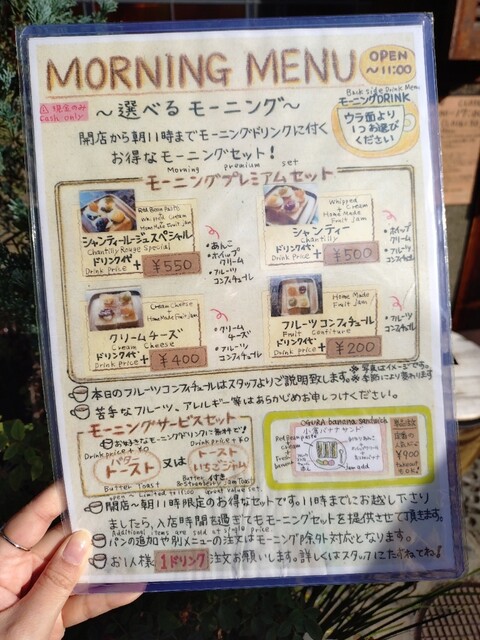 MORNING MENU
OPEN
～11:00
現金のみ
cash only
～選べるモーニング～
Back side Drink Menu
モーニングDRINK
ウラ面より
1つお選び
ください
開店から朝11時までモーニングドリンクに付く
お得なモーニングセット!
Morning premium set
モーニングプレミアムセット
Red Bean Paste
+
Whipped Cream
+
Home Made Fruit Jam
シャンティールージュスペシャル
Chantilly Rouge Special
ドリンク代+ ¥550
Drink Price
・あんこ
・ホイップクリーム
・フルーツコンフィチュール
Whipped Cream
+
Home Made Fruit Jam
シャンティー
Chantilly
ドリンク代+ ¥500
Drink Price
・ホイップクリーム
・フルーツコンフィチュール
Cream Cheese
+
Home Made Fruit Jam
クリームチーズ
Cream Cheese
ドリンク代+ ¥400
Drink Price
・クリームチーズ
・フルーツコンフィチュール
Home Made Fruit Jam
フルーツコンフィチュール
Fruit Confiture
ドリンク代+ ¥200
Drink Price
・フルーツコンフィチュール
※写真はイメージです。
※季節により変わります
本日のフルーツコンフィチュールはスタッフよりご説明致します。
苦手なフルーツ、アレルギー等はあらかじめお申しつけください。
モーニングサービスセット
お好きなモーニングドリンクに無料で!
Drink price + ¥0
バタートースト
Butter Toast
又は
Drink price + ¥0
トースト
いちごジャム付き
Butter & Strawberry Jam Toast
OGURA banana sandwich
小倉バナナサンド
Red bean paste
+
Cream
+
Fresh banana
Jam add
¥900
takeout
OK!
open ~ Limited to 11:00 great value set.
開店～朝11時限定のお得なセットです。11時までにお越し下さり
ましたら、入店時間を過ぎてもモーニングセットを提供させて頂きます。
Additional items are sold at single price
パンの追加や別メニューの注文はモーニング除外対応となります。
お1人様1ドリンク注文お願いします。詳しくはスタッフにたずねてね!